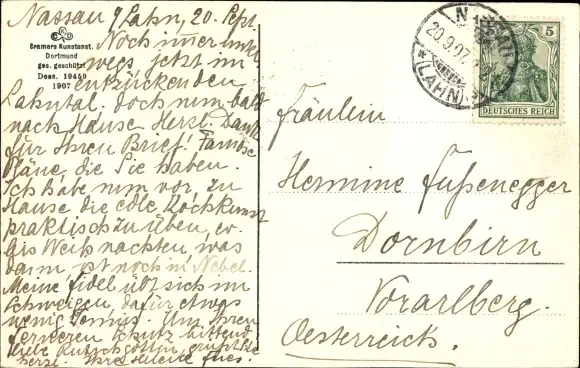 Nassau a/Lahn, 20. Sept.
Bremers Kunstanst.
Dortmund
ges. geschützt
Dess. 19459
1907
Noch immer unter
wegs, jetzt im
entzückenden
Lahntal. Doch nun bald
nach Hause. Herzl. Dank
für Ihren Brief! Famose
Pläne, die Sie haben.
Ich habe nun vor, zu
Hause die edle Kochkunst
praktisch zu üben,
bis Weihnachten, was
dann, ist noch in Nebel.
Meine Fidel übt sich im
Schweigen, dafür etwas
wenig Tennis. Um Ihren
ferneren Schutz bittend
liebe Rutschgöttin, grüßt Sie
herzl. Ihre
NASSAU
20.9.07
(LAHN)
5
DEUTSCHES REICH
Fräulein
Hermine Fußenegger
Dornbirn
Vorarlberg.
Oesterreich.